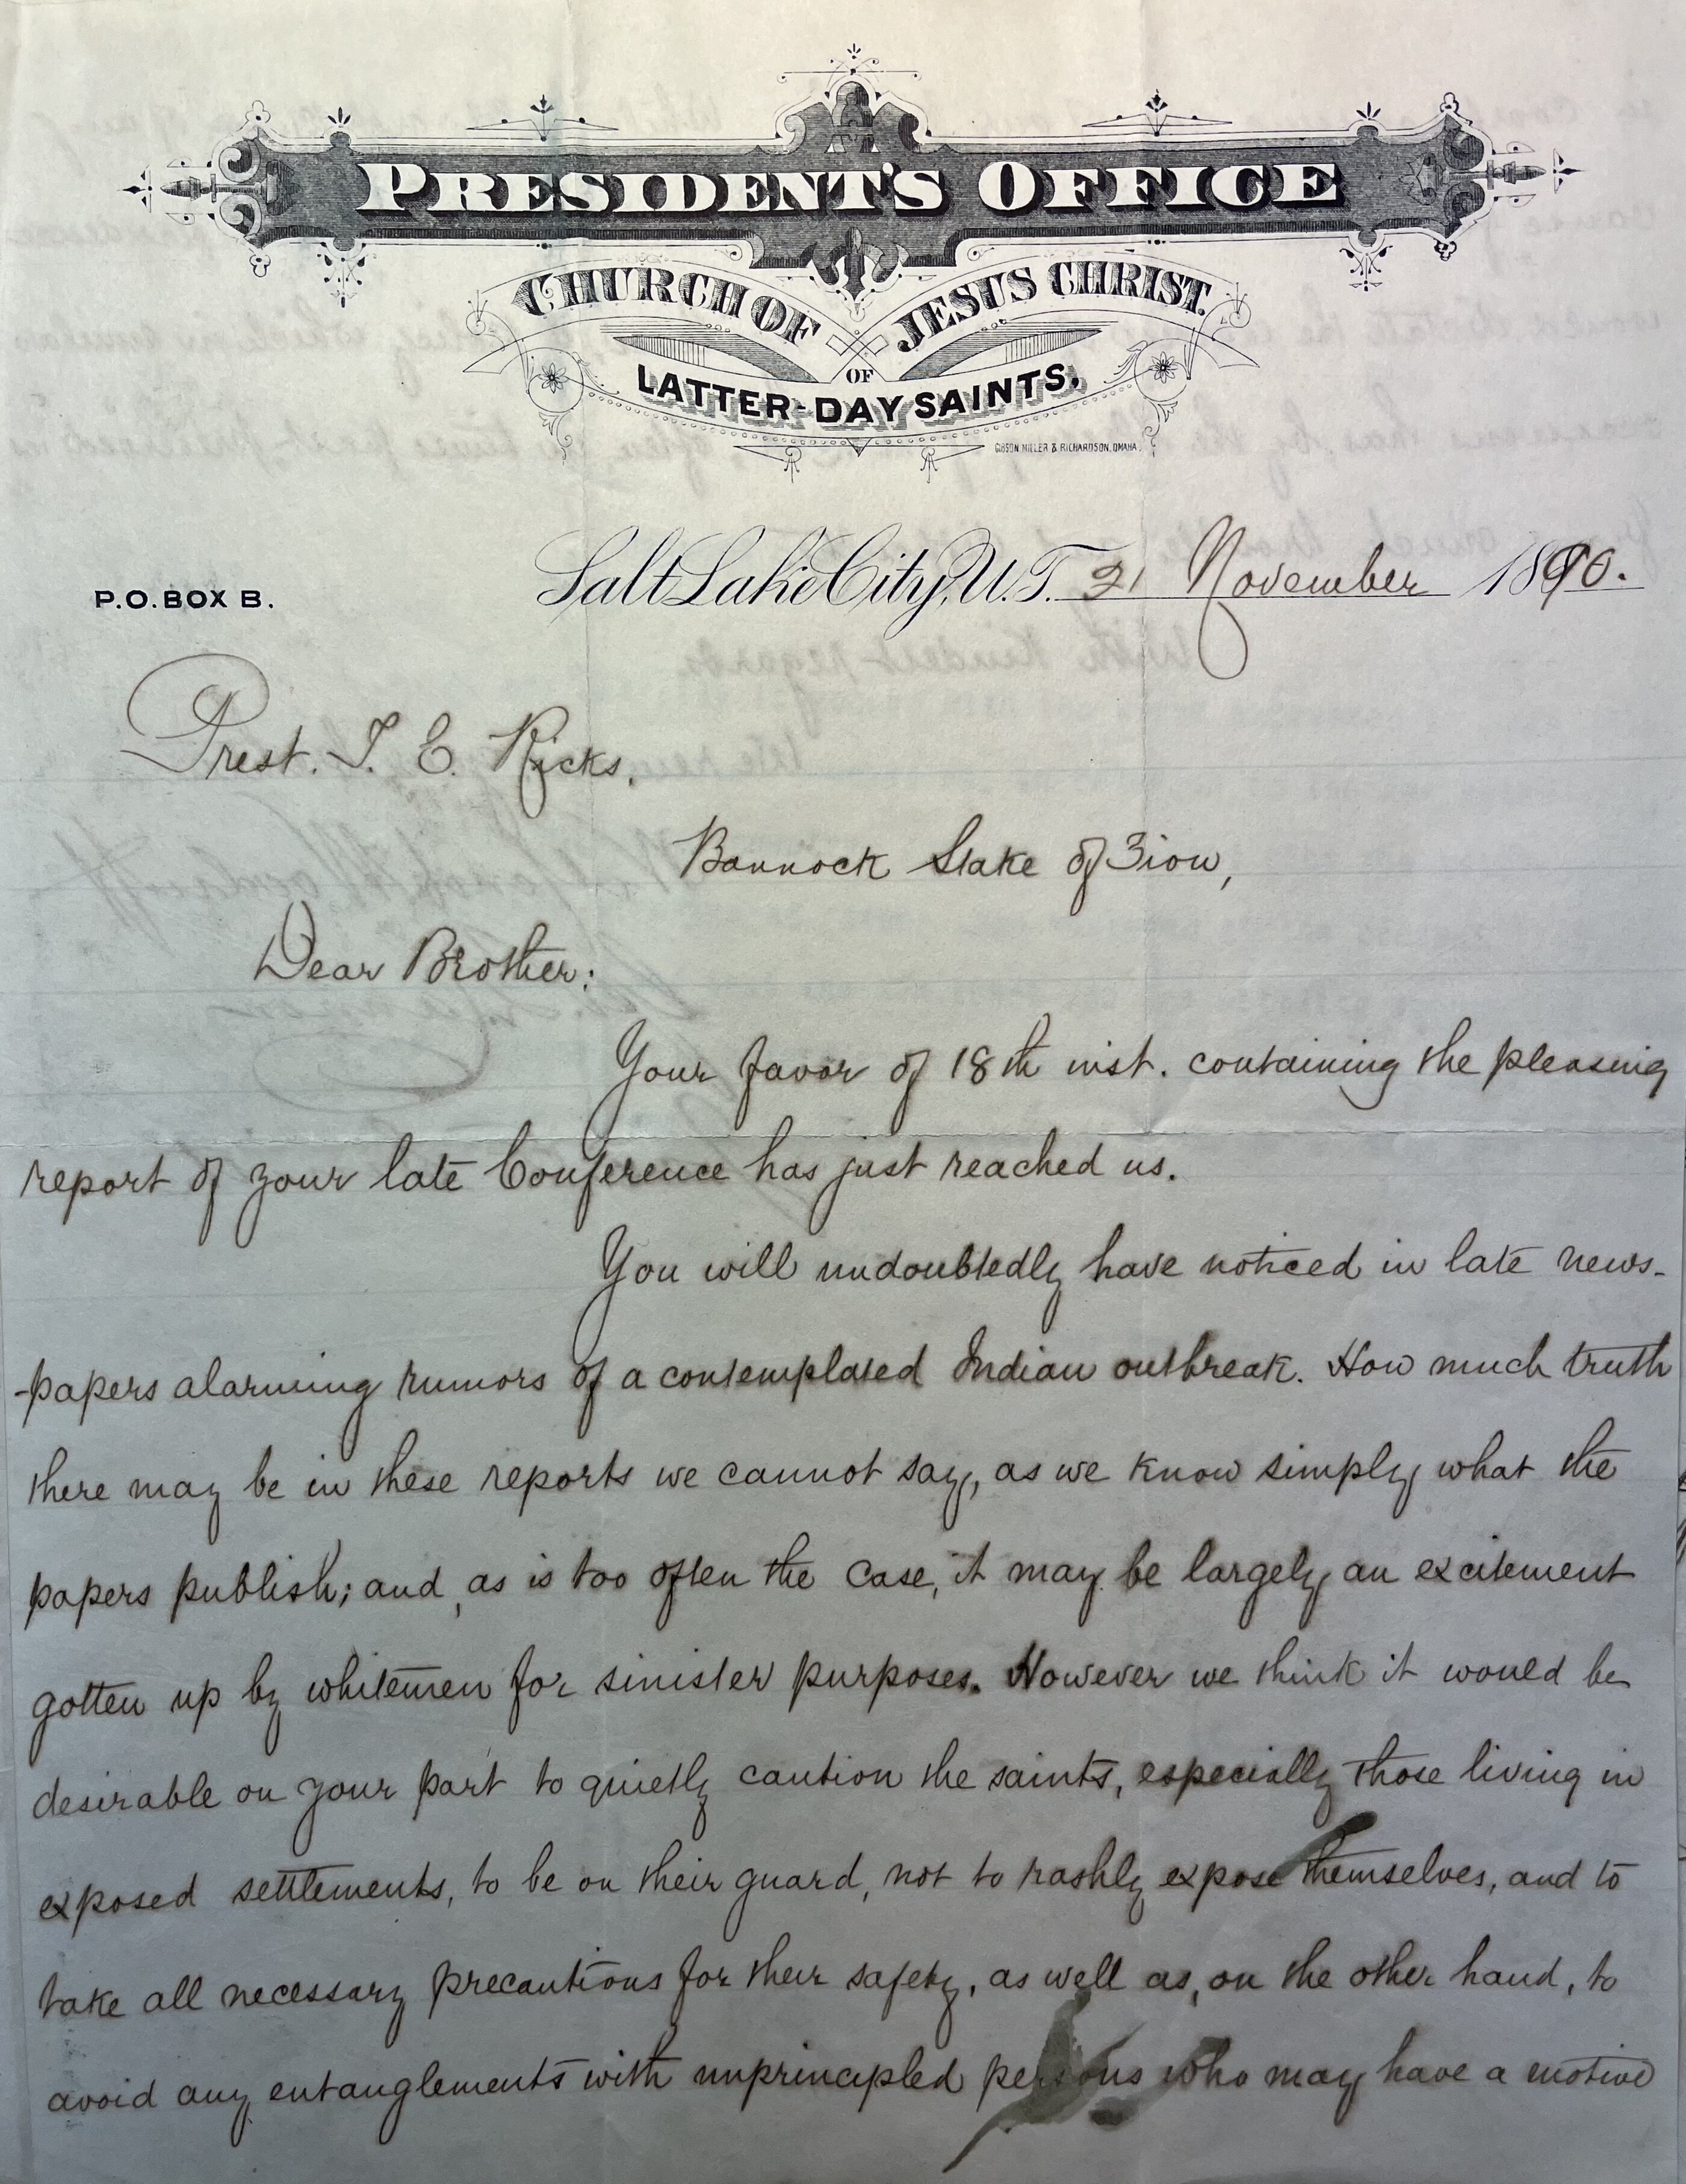 PRESIDENT'S OFFICE
CHURCH OF JESUS CHRIST.
OF
LATTER-DAY SAINTS.
GIBSON MILLER & RICHARDSON, OMAHA.
P.O. BOX B.
Salt Lake City, U.T. 21 November 1890.
Prest. T. E. Ricks.
Bannock Stake of Zion,
Dear Brother:
Your favor of 18th inst. containing the pleasing
report of your late Conference has just reached us.
You will undoubtedly have noticed in late news-
-papers alarming rumors of a contemplated Indian outbreak. How much truth
there may be in these reports we cannot say, as we know simply what the
papers publish; and, as is too often the case, it may be largely an excitement
gotten up by whitemen for sinister purposes. However we think it would be
desirable on your part to quietly caution the saints, especially those living in
exposed settlements, to be on their guard, not to rashly expose themselves, and to
take all necessary precautions for their safety, as well as, on the other hand, to
avoid any entanglements with unprincipled persons who may have a motive
With kindest regards